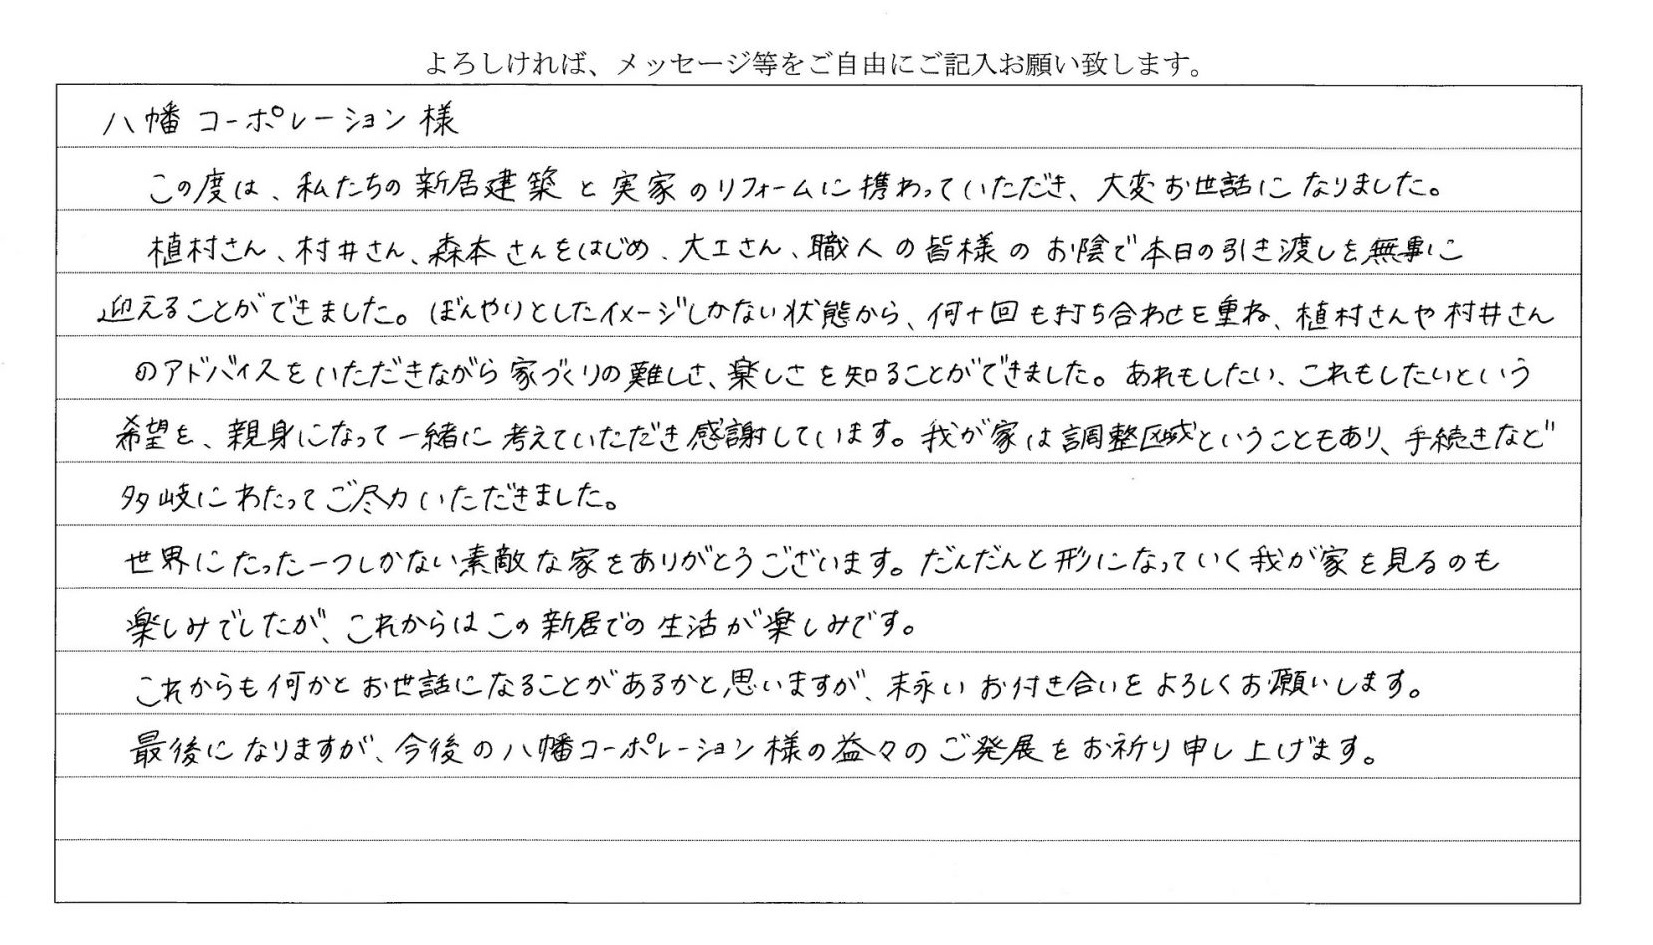 よろしければ、メッセージ等をご自由にご記入お願い致します。
八幡コーポレーション様
この度は、私たちの新居建築と実家のリフォームに携わっていただき、大変お世話になりました。
植村さん、村井さん、森本さんをはじめ、大工さん、職人の皆様のお陰で本日の引き渡しを無事に
迎えることができました。ぼんやりとしたイメージしかない状態から、何十回も打ち合わせを重ね、植村さんや村井さん
のアドバイスをいただきながら家づくりの難しさ、楽しさを知ることができました。あれもしたい、これもしたいという
希望を、親身になって一緒に考えていただき感謝しています。我が家は調整区域ということもあり、手続きなど
多岐にわたってご尽力いただきました。
世界にたった一つしかない素敵な家をありがとうございます。だんだんと形になっていく我が家を見るのも
楽しみでしたが、これからはこの新居での生活が楽しみです。
これからも何かとお世話になることがあるかと思いますが、末永いお付き合いをよろしくお願いします。
最後になりますが、今後の八幡コーポレーション様の益々のご発展をお祈り申し上げます。